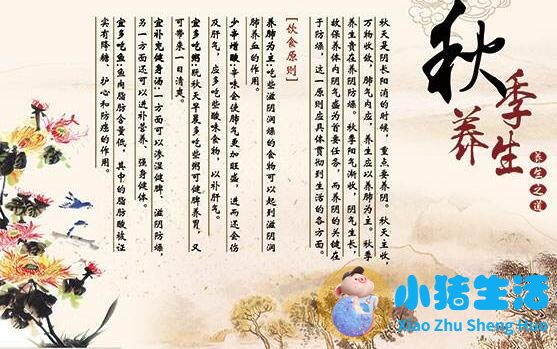 秋季养生
养生之道
秋天是阴长阳消的时候，重点要养阴。秋天主收，
万物收敛，肺气内应，养生应以养肺为主。秋季
养生贵在养阴防燥。秋季阳气渐收，阴气生长，
故保养体内阴气盛为首要任务，而养阴的关键在
于防燥，这一原则应具体贯彻到生活的各方面。
[饮食原则]
养肺为主:吃些滋阴润燥的食物可以起到滋阴润
肺养血的作用。
少辛增酸:辛味食使肺气更加旺盛，进而还会伤
及肝气，应多吃些酸味食物，以补肝气。
宜多吃粥:秋天早晨多吃些粥可健脾养胃，又
可带来一日清爽。
宜补充健身汤:一方面可以渗湿健脾、滋阴防燥，
另一方面还可以进补营养、强身健体。
宜多吃鱼:鱼肉脂肪含量低，其中的脂肪酸被证
实有降糖、护心和防癌的作用。
小猪生活
Xiao Zhu Sheng Huo